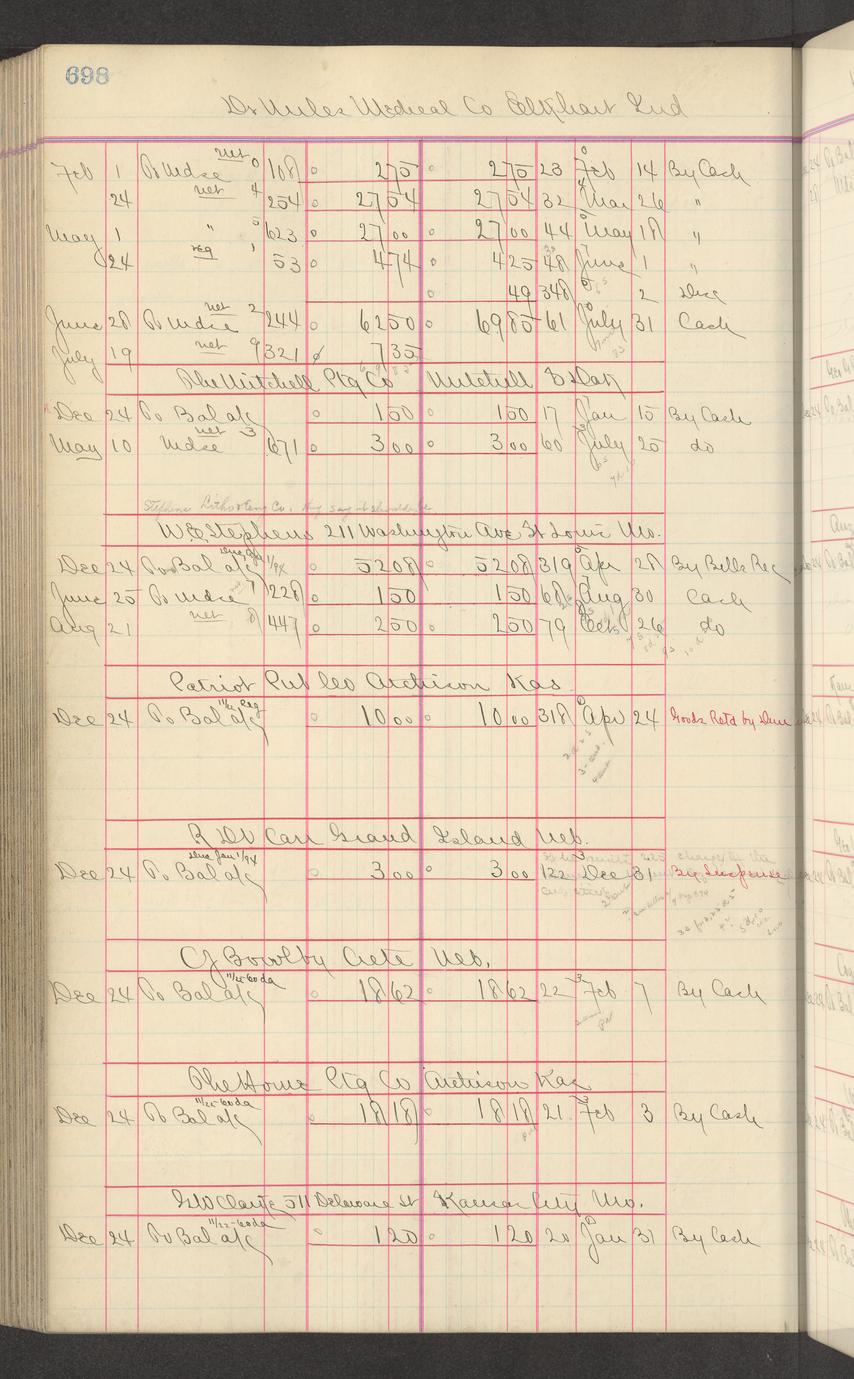 698
Dr Miles Medical Co Elkhart Ind
Feb 1 To Mdse net 0 108 0 2 75 0 2 75 23 Feb 14 By Cash
24 net 4 254 0 27 54 0 27 54 32 Mar 26 "
May 1 " 5 623 0 27 00 0 27 00 44 May 18 "
24 reg 1 53 0 4 74 0 4 25 48 June 1 "
0 49 348 2 Disc
June 28 To Mdse net 2 244 0 62 50 0 69 85 61 July 31 Cash
July 19 net 9 321 7 35
The Mitchell Ptg Co Mitchell S Dak
Dec 24 To Bal a/c 1 50 0 1 50 17 Jan 15 By Cash
May 10 Mdse net 3 671 0 3 00 0 3 00 60 July 25 do
Stephens Litho & Eng Co.
W E Stephens 211 Washington Ave St Louis Mo.
Dec 24 To Bal a/c 1/94 0 52 08 0 52 08 319 Apr 28 By Bills Rec
June 25 To Mdse 1 228 0 1 50 0 1 50 68 Aug 30 Cash
Aug 21 net 8 447 0 2 50 0 2 50 79 Oct 26 do
Patriot Pub Co Atchison Kas
Dec 24 To Bal a/c 11/22 Reg 0 10 00 0 10 00 318 Apr 24 Goods Retd by Dun
R W Carr Grand Island Neb.
Dec 24 To Bal a/c Due Jan 1/94 0 3 00 0 3 00 122 Dec 31 By Suspense
C J Bowlby Crete Neb.
Dec 24 To Bal a/c 11/22-60da 0 18 62 0 18 62 22 Feb 7 By Cash
The Home Ptg Co Atchison Kas
Dec 24 To Bal a/c 11/22-60da 0 18 18 0 18 18 21 Feb 3 By Cash
511 Delaware St Kansas City Mo.
Dec 24 To Bal a/c 11/22-60da 0 1 20 0 1 20 20 Jan 31 By Cash